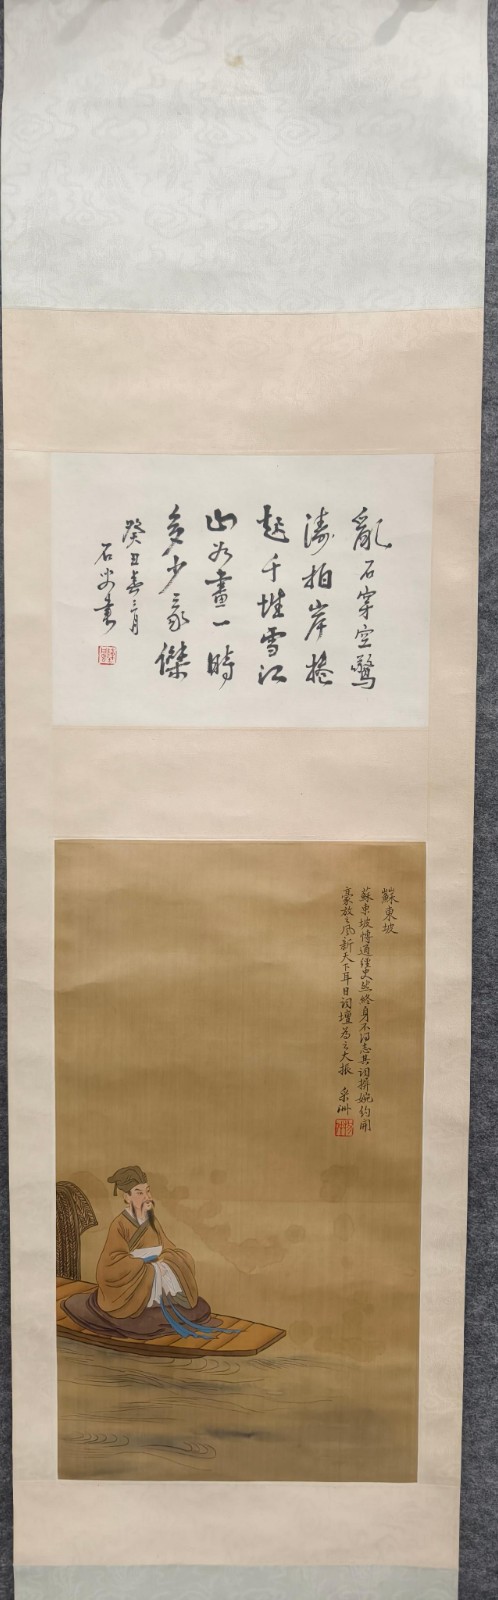 亂石穿空驚
濤拍岸捲
起千堆雪江
山如畫一時
多少豪傑
癸丑春三月
石
蘇東坡
蘇東坡博通經史然終身不得志其詞擯婉約開
豪放之風新天下耳目詞壇為之大振